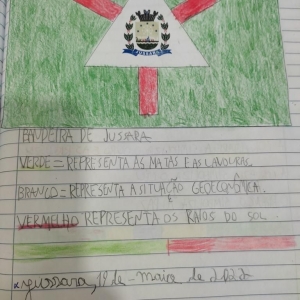 JUSSARA
BANDEIRA DE JUSSARA
VERDE = REPRESENTA AS MATAS E AS LAVOURAS.
BRANCO = REPRESENTA A SITUAÇÃO
E
VERMELHO REPRESENTA OS RAIOS DO SOL.
Jussara, 19 de maio de 2022